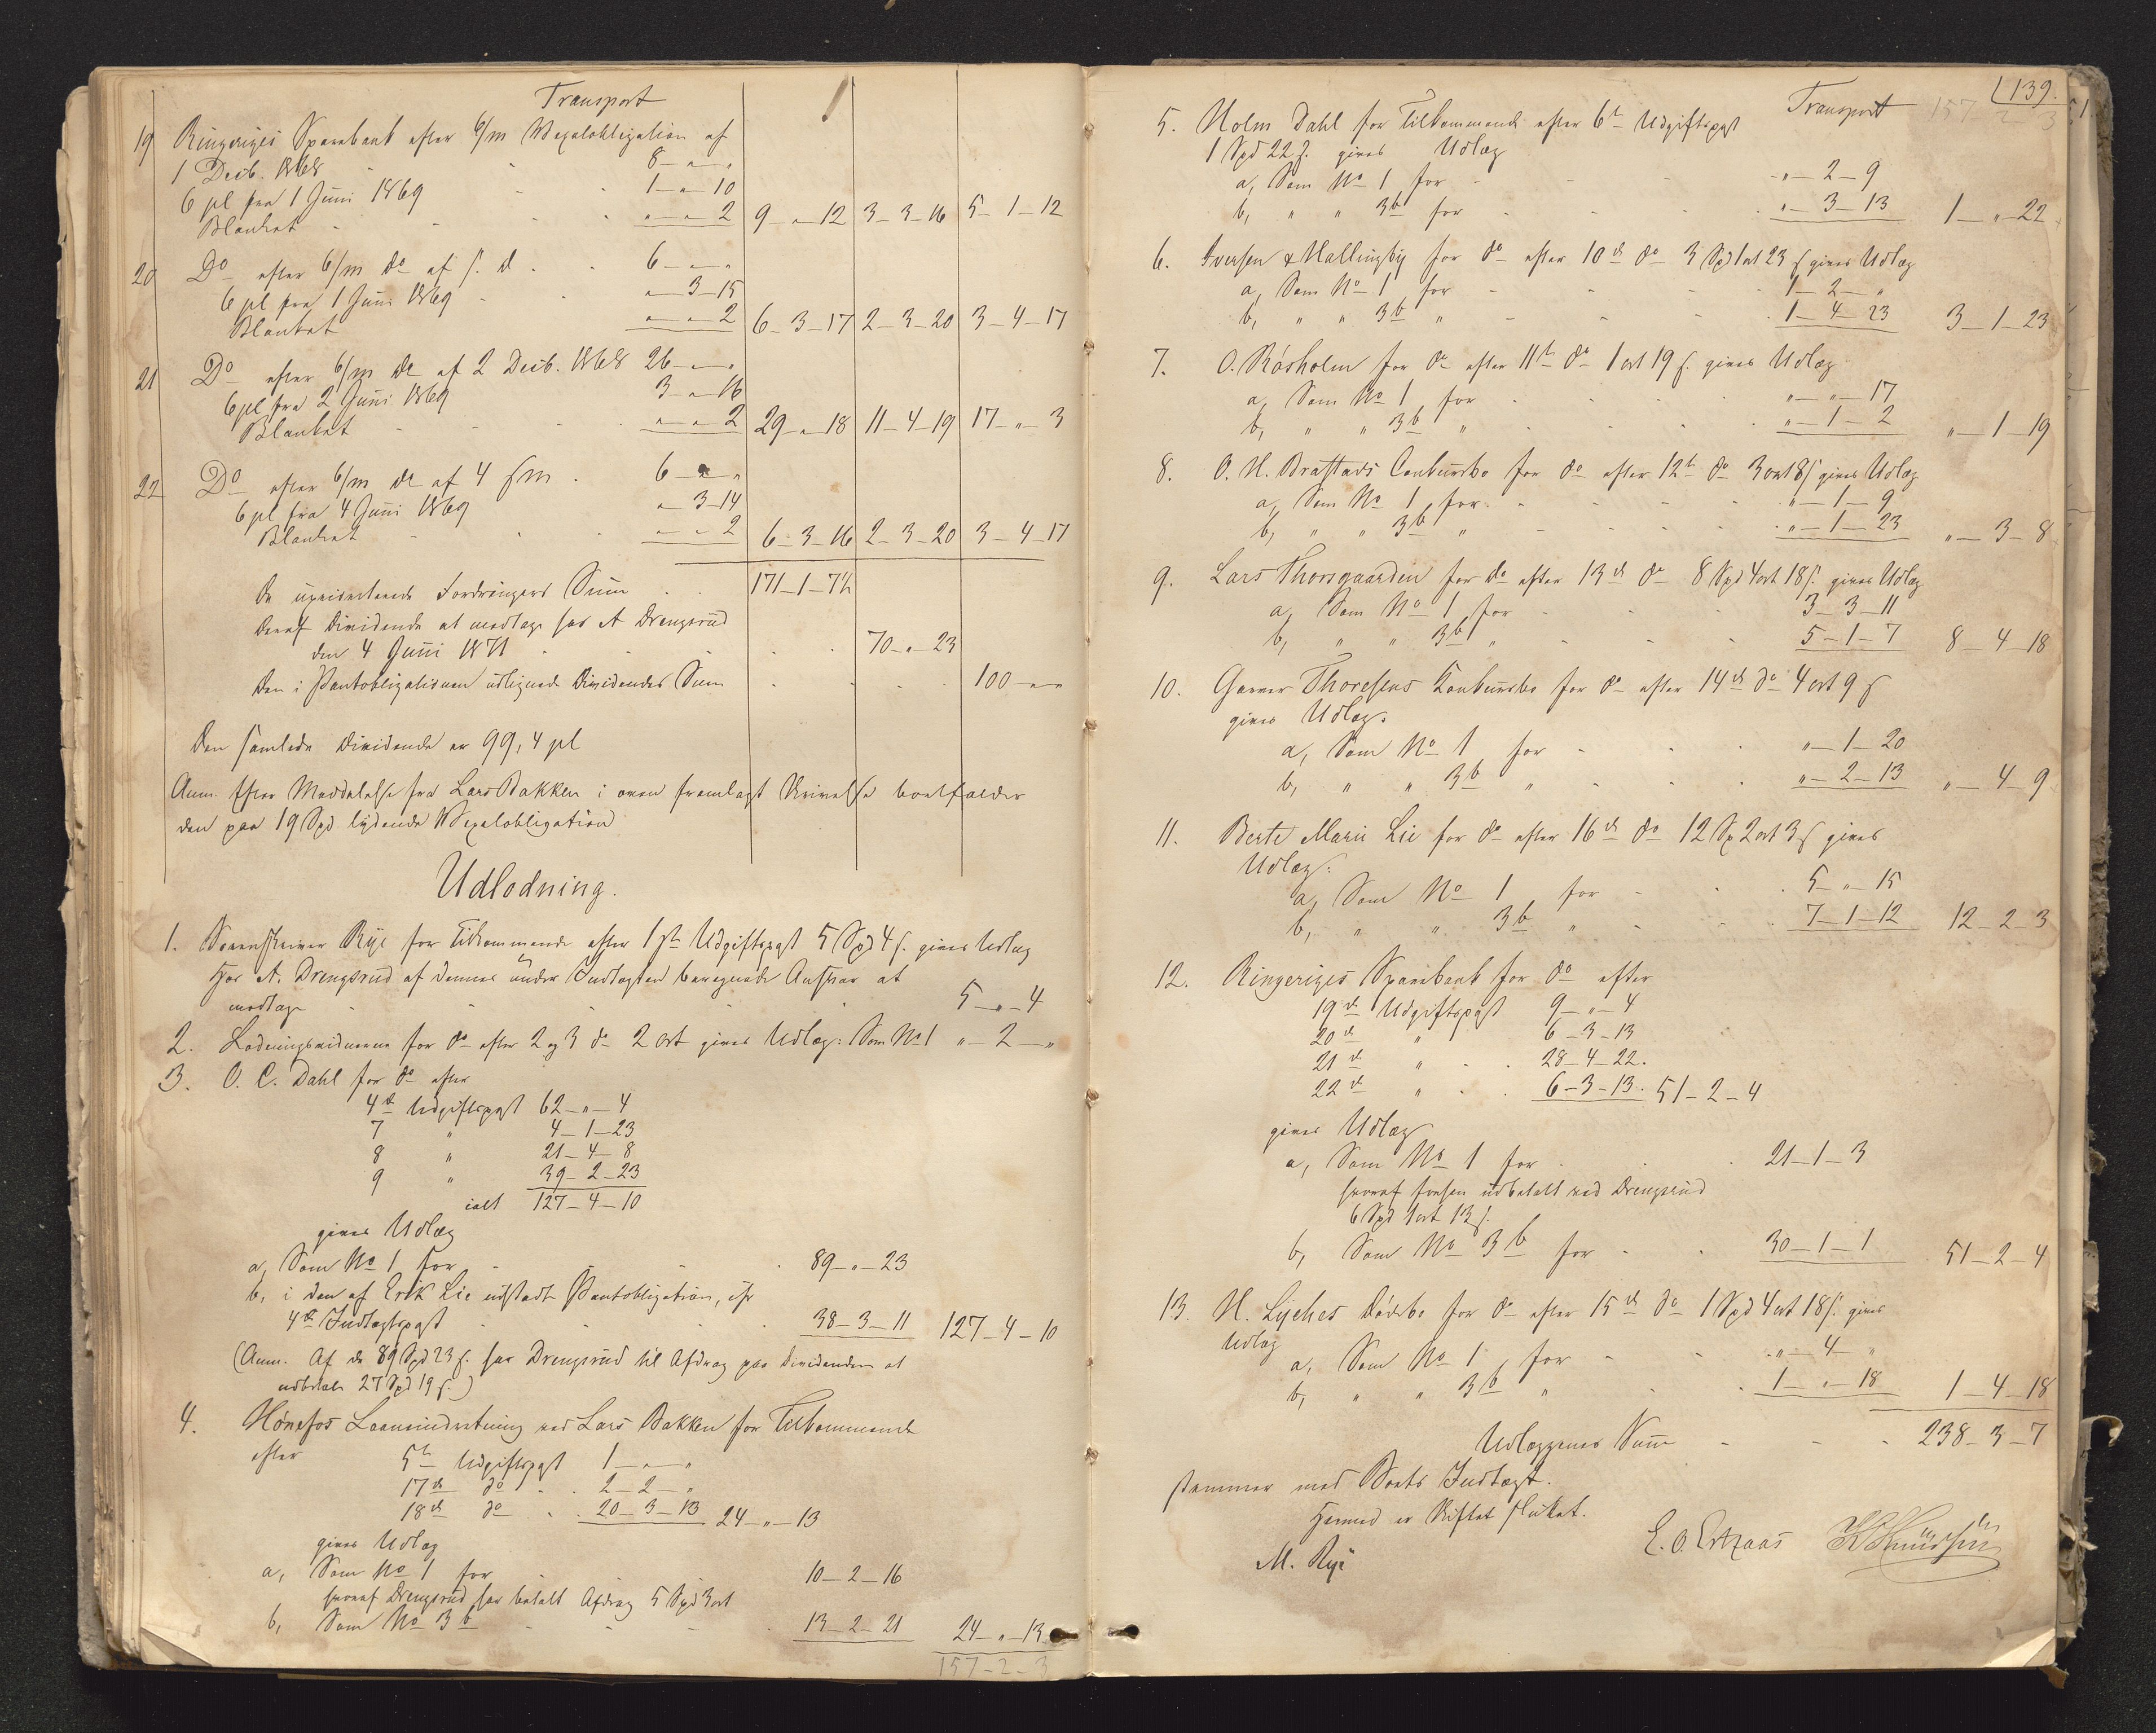 Transport
19 Ringeriges Sparebank efter 6/m Vexelobligation af
1 Decb. 1868 8 — „ — „
6 pCt fra 1 Juni 1869 1 — „ — 10
Blanket „ — „ — 2 9 — „ — 12 3 — 3 — 16 5 — 1 — 12
20 Do efter 6/m do af s. d. 6 — „ — „
6 pCt fra 1 Juni 1869 „ — 3 — 15
Blanket „ — „ — 2 6 — 3 — 17 2 — 3 — 20 3 — 4 — 17
21 Do efter 6/m do af 2 Decb. 1868 26 — „ — „
6 pCt fra 2 Juni 1869 3 — „ — 16
Blanket „ — „ — 2 29 — „ — 18 11 — 4 — 19 17 — „ — 3
22 Do efter 6/m do af 4 s m. 6 — „ — „
6 pCt fra 4 Juni 1869 „ — 3 — 14
Blanket „ — „ — 2 6 — 3 — 16 2 — 3 — 20 3 — 4 — 17
De uprioriterede Fordringers Sum 171 — 1 — 7½
Deraf Dividende at modtage hos A Drengsrud
den 4 Juni 1871 70 — „ — 23
Den i Pantobligationen udlignede Dividendes Sum 100 — „ — „
Den samlede Dividende er 99,4 pCt
Anm. Efter Meddelelse fra Lars Bakken i oven fremlagt Skrivelse bortfalder
den paa 19 Spd lydende Vexelobligation
Udlodning.
1. Sorenskriver Rye for Tilkommende efter 1ste Udgiftspost 5 Spd 4 s. gives Udlæg
hos A. Drengsrud af dennes under Indtægten beregnede Ansvar at
modtage 5 — „ — 4
2. Lodningsvidnerne for do efter 2 og 3 do 2 ort gives Udlæg: Som No 1 „ — 2 — „
3. O. C. Dahl for do efter
4de Udgiftspost 62 — „ — 4
7 „ 4 — 1 — 23
8 „ 21 — 4 — 8
9 „ 39 — 2 — 23
ialt 127 — 4 — 10
gives Udlæg
a, Som No 1 for 89 — „ — 23
b, i den af Erik Lie udstedt Pantobligation, cfr
4de Indtægtspost 38 — 3 — 11 127 — 4 — 10
(Anm. Af de 89 Spd 23 s. har Drengsrud til Afdrag paa Dividenden at
udbetale 27 Spd 19 s.)
4. Hønefos Laaneindretning ved Lars Bakken for Tilkommende
efter 5te Udgiftspost 1 — „ — „
17de do 2 — 2 — „
18de do 20 — 3 — 13 24 — „ — 13
gives Udlæg
a, Som No 1 for 10 — 2 — 16
hvoraf Drengsrud har betalt Afdrag 5 Spd 3 ort
b, Som No 3 b 13 — 2 — 21 24 — „ — 13
157 — 2 — 3
139.
Transport 157 2 3
5. Holm Dahl for Tilkommende efter 6te Udgiftspost
1 Spd 22 s. gives Udlæg
a, Som No 1 for „ — 2 — 9
b, „ „ 3 b for „ — 3 — 13 1 — „ — 22
6. Iversen & Hallingby for do efter 10de do 3 Spd 1 ort 23 s gives Udlæg
a, Som No 1 for 1 — 2 — „
b, „ „ 3 b „ 1 — 4 — 23 3 — 1 — 23
7. O. Røsholm for do efter 11te do 1 ort 19 s. gives Udlæg
a, Som No 1 for „ — „ — 17
b, „ „ 3 b „ „ — 1 — 2 „ — 1 — 19
8. O. H. Brastads Conkursbo for do efter 12te do 3 ort 8 s gives Udlæg
a, Som No 1 for „ — 1 — 9
b, „ „ 3 b „ „ — 1 — 23 „ — 3 — 8
9. Lars Thorsgaarden for do efter 13de do 8 Spd 4 ort 18 s. gives Udlæg
a, Som No 1 for 3 — 3 — 11
b, „ „ 3 b „ 5 — 1 — 7 8 — 4 — 18
10. Garver Thoresens Konkursbo for do efter 14de do 4 ort 9 s
gives Udlæg.
a, Som No 1 for „ — 1 — 20
b, „ „ 3 b „ „ — 2 — 13 „ — 4 — 9
11. Berte Marie Lie for do efter 16de do 12 Sp 2 ort 3 s gives
Udlæg:
a, Som No 1 for 5 — „ — 15
b, „ „ 3 b „ 7 — 1 — 12 12 — 2 — 3
12. Ringeriges Sparebank for do efter
19de Udgiftspost 9 — „ — 4
20de „ 6 — 3 — 13
21de „ 28 — 4 — 22.
22de „ 6 — 3 — 13. 51 — 2 — 4
gives Udlæg
a, Som No 1 for 21 — 1 — 3
hvoraf forhen udbetalt ved Drengsrud
6 Spd 1 ort 13 s.
b, Som No 3 b for 30 — 1 — 1 51 — 2 — 4
13. H. Lyches Dødsbo for do efter 15de do 1 Spd 4 ort 18 s. gives
Udlæg
a, Som No 1 for „ — 4 — „
b, „ „ 3 b „ 1 — „ — 18 1 — 4 — 18
Udlæggenes Sum 238 — 3 — 7
stemmer med Boets Indtægt.
Hermed er Skiftet sluttet.
M. Rye